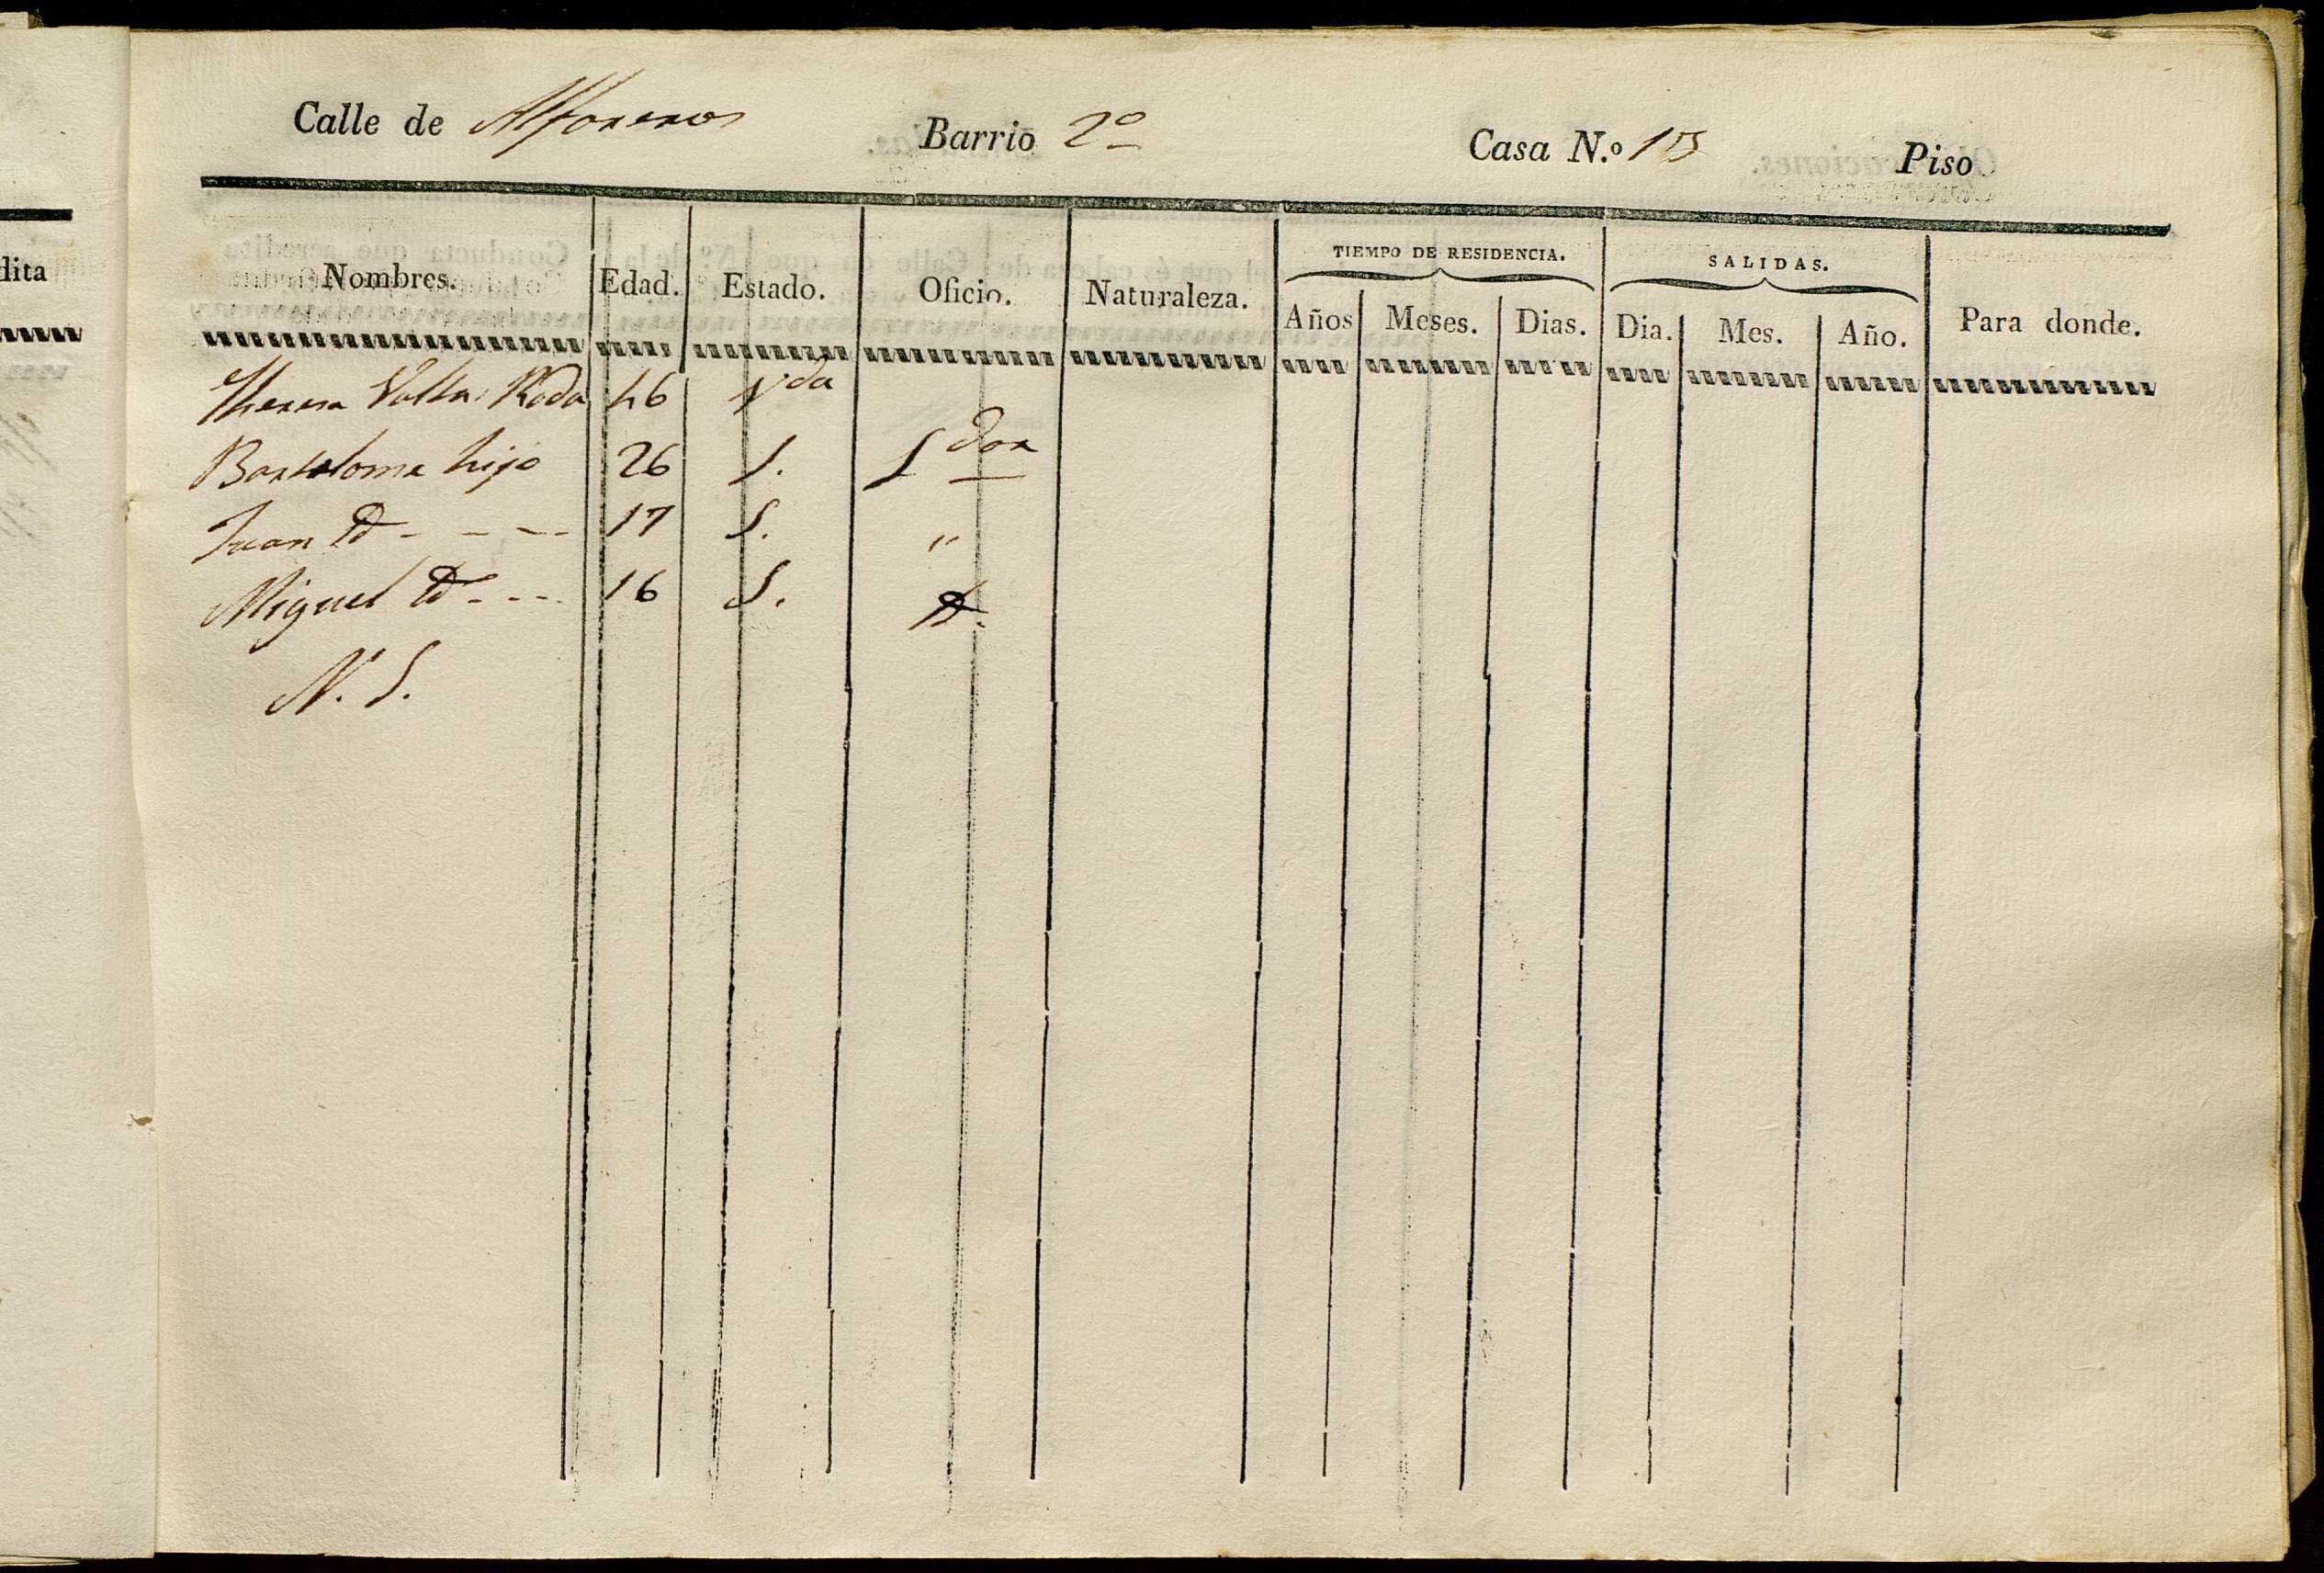 dita
Calle de Alfareros Barrio 2º Casa N.º 15 Piso
Nombres. Edad. Estado. Oficio. Naturaleza. TIEMPO DE RESIDENCIA. Años Meses. Dias. SALIDAS. Dia. Mes. Año. Para donde.
Theresa Roda 46 Vda
Bartolome hijo 26 S. Jdor
Juan Yd - - - 17 S. "
Miguel Yd - - - 16 S. Yd.
N. S.